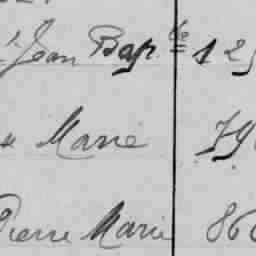 Jean Bap.te 125
Marie 79
Pierre Marie 860